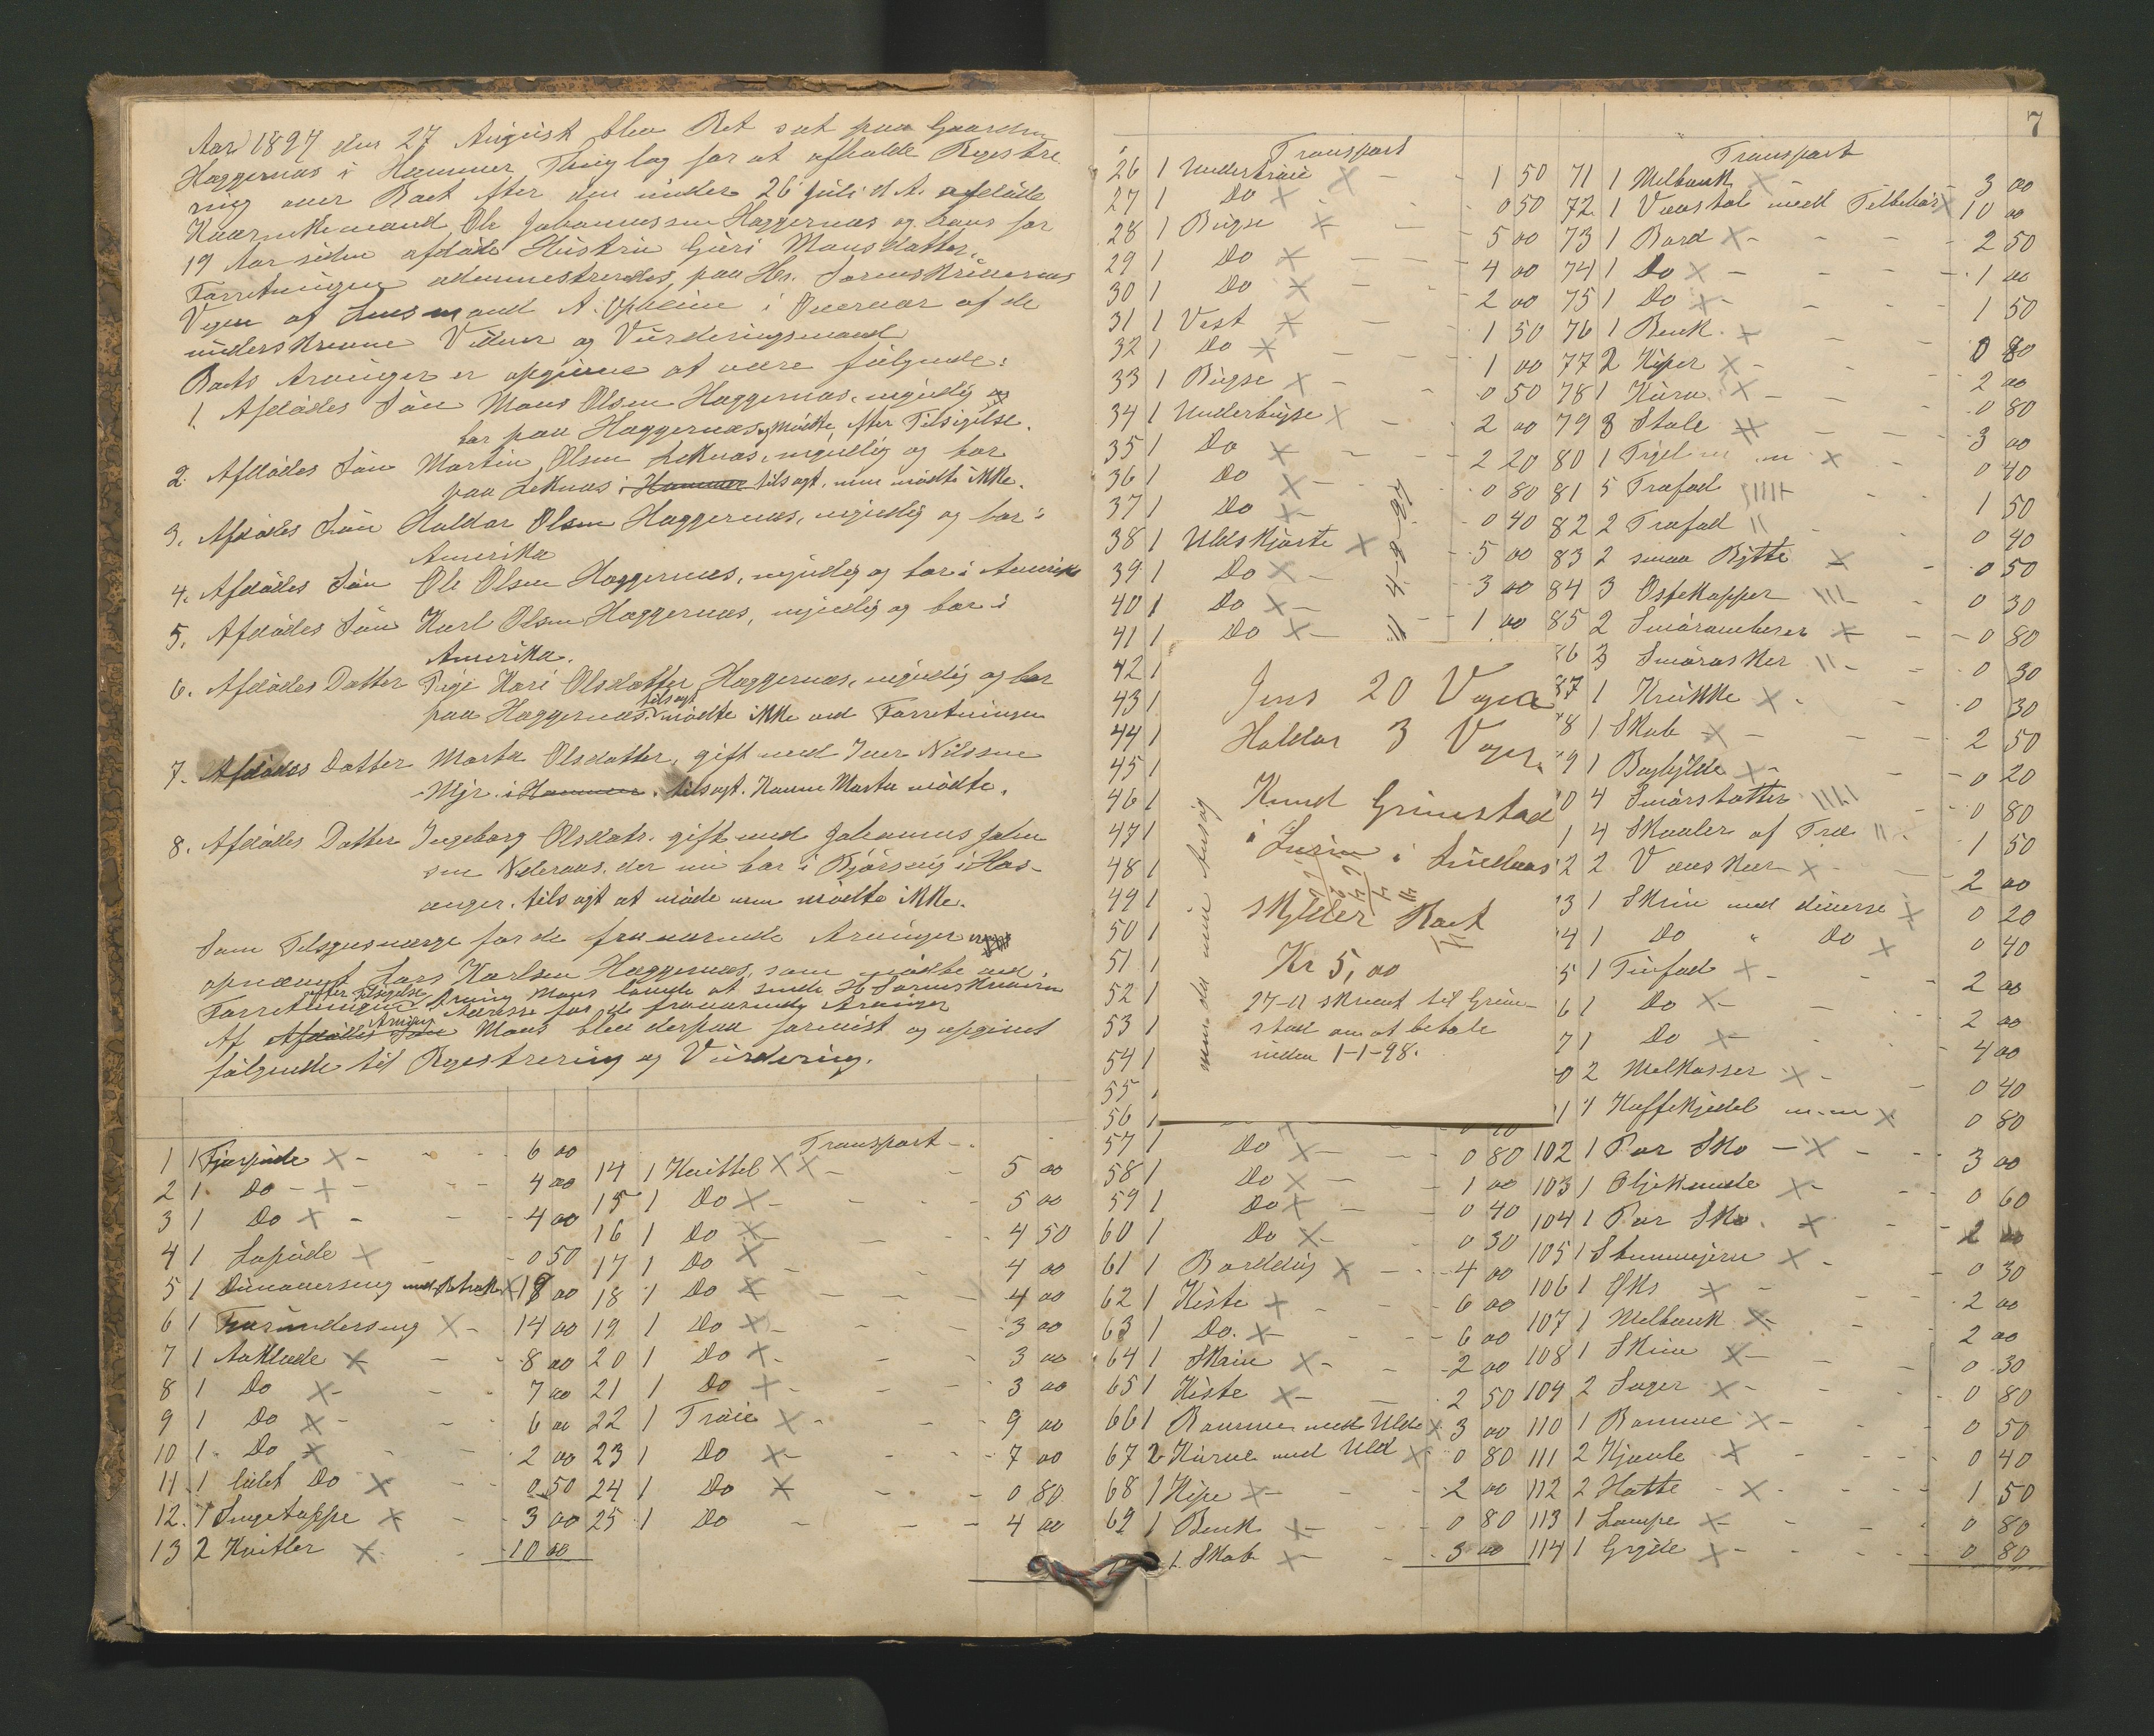 Aar 1897 den 27 August blev Ret sat paa Gaarden
Haggernæs i Hammer Thinglag for at afholde Regestre
ring over Boet efter den under 26 juli d. A. afdøde
Kaarmand Ole Johannessen Haggernæs og hans for
19 Aar siden afdøde Hustru Guri Monsdatter.
Forretningen administreredes paa Hr. Sorenskriverens
Vegne af Lensmand A. Opheim i Overvær af de
underskrevne Vidner og Vurderingsmænd
Boets Arvinger er opgivne at være følgende:
1. Afdødes Søn Mons Olsen Haggernæs, myndig og
bor paa Haggernæs og mødte efter Tilsigelse.
2. Afdødes Søn Martin Olsen Leknæs, myndig og bor
paa Leknæs i Hammer tilsagt, men mødte ikke.
3. Afdødes Søn Haldor Olsen Haggernæs, myndig og bor i
Amerika
4. Afdødes Søn Ole Olsen Haggernæs, myndig og bor i Amerika
5. Afdødes Søn Karl Olsen Haggernæs, myndig og bor i
Amerika.
6. Afdødes Datter Kari Olsdatter Haggernæs, myndig og bor
paa Haggernæs tilsagt mødte ikke ved Forretningen
7. Afdødes Datter Marta Olsdatter, gift med Iver Nilssen
Mjr i Hammer. tilsagt. Marta mødte.
8. Afdødes Datter Ingeborg Olsdatr. gift med Johannes Johan
sen Nideraas, der nu bor i i Hos-
anger. tilsagt at møde men mødte ikke.
Som Tilsynsværge for de fraværende Arvinger
opnævnt Lars Karlsen Haggernæs, som mødte ved
Forretningen efter Tilsigelse. Arving Mons lovede at sende Hr Sorenskriveren
Adresse for de fraværende Arvinger
Af Afdødes Søn Arving Mons blev derpaa forevist og opgivet
følgende til Regestrering og Vurdering.
1 1 Fjærpude X 6 00
2 1 Do X 4 00
3 1 Do X 4 00
4 1 Lapude X 0 50
5 1 Dunoverseng med Betræk X 18 00
6 1 Fjærunderseng X 14 00
7 1 Aaklæde X 8 00
8 1 Do X 7 00
9 1 Do X 6 00
10 1 Do X 2 00
11 1 lidet Do X 0 50
12 1 Sengetæppe X 3 00
13 2 Kvitler X 10 00
Transport
14 1 Kvittel X X 5 00
15 1 Do X 5 00
16 1 Do X 4 50
17 1 Do X 4 00
18 1 Do X 4 00
19 1 Do X 3 00
20 1 Do X 3 00
21 1 Do X 3 00
22 1 Trøie X 9 00
23 1 Do X 7 00
24 1 Do X 0 80
25 1 Do 4 00
7
Transport
26 1 Undertrøie X 1 50
27 1 Do X 0 50
28 1 Bugse X 5 00
29 1 Do X 4 00
30 1 Do X 2 00
31 1 Vest X 1 50
32 1 Do X 1 00
33 1 Bugse X 0 50
34 1 Underbugse X 2 00
35 1 Do X 2 20
36 1 Do X 0 80
37 1 Do X 0 40
38 1 Uldskjorte X 5 00
39 1 Do X 3 00
40 1 Do X 1 00
41 1 Do X
42 1
43 1
44 1
45 1
46 1
47 1
48 1
49 1
50 1
51 1
52 1
53 1
54 1
55
56 1
57 1 Do X 0 80
58 1 Do X 1 00
59 1 Do X 0 40
60 1 Do X 0 30
61 1 Borddug X 4 00
62 1 Kiste X 6 00
63 1 Do. X 6 00
64 1 Skrin X 2 00
65 1 Kiste X 2 50
66 1 Bomme med Uld X 3 00
67 2 Kurve med Uld X 0 80
68 1 Kipe X 2 00
69 1 Benk X 0 80
1 Skab X 3 00
Jens 20 Voger
Haldor 3 Voger
Knud Grimstad
i Lurin i Lindaas
skylder Boet
Kr 5,00
27-11 skrevet til Grim-
stad om at betale
inden 1-1-98.
Transport
71 1 Melbænk X 3 00
72 1 Vævstol med Tilbehør X 10 00
73 1 Bord X 2 50
74 1 Do X 1 00
75 1 Do X 1 50
76 1 Benk X 0 80
77 2 Kiper X 2 00
78 1 Kurv X 0 80
79 8 Stole X 3 00
80 1 X 0 40
81 5 Træfad 1 50
82 2 Træfad 0 40
83 2 smaa Bytte X 0 50
84 3 Ostekopper 0 30
85 2 Smørambarer X 0 80
86 3 Smørasker 0 30
87 1 Krukke X 0 30
8 1 Skab X 2 50
9 1 Boghylde X 0 20
0 4 Smørstøtter 0 80
1 4 Skaaler af Træ 1 50
2 2 Vasskar X 2 00
3 1 Skrin med diverse X 0 20
4 1 Do " Do X 0 40
5 1 Tinfad X 2 00
6 1 Do X 2 00
7 1 Do X 4 00
0 2 Melkasser X 0 40
1 1 Kaffekjedel m.m X 0 80
102 1 Par Sko X 3 00
103 1 Oljekande X 0 60
104 1 Par Sko X 2 00
105 1 Stemmejern X 0 30
106 1 Øks X 2 00
107 1 Melbænk X 2 00
108 1 Skrin X 0 30
109 2 Sager X 0 80
110 1 Bomme X 0 50
111 2 Kjævle X 0 40
112 2 Hatte X 1 50
113 1 Lampe X 0 80
114 1 Gryde X 0 80